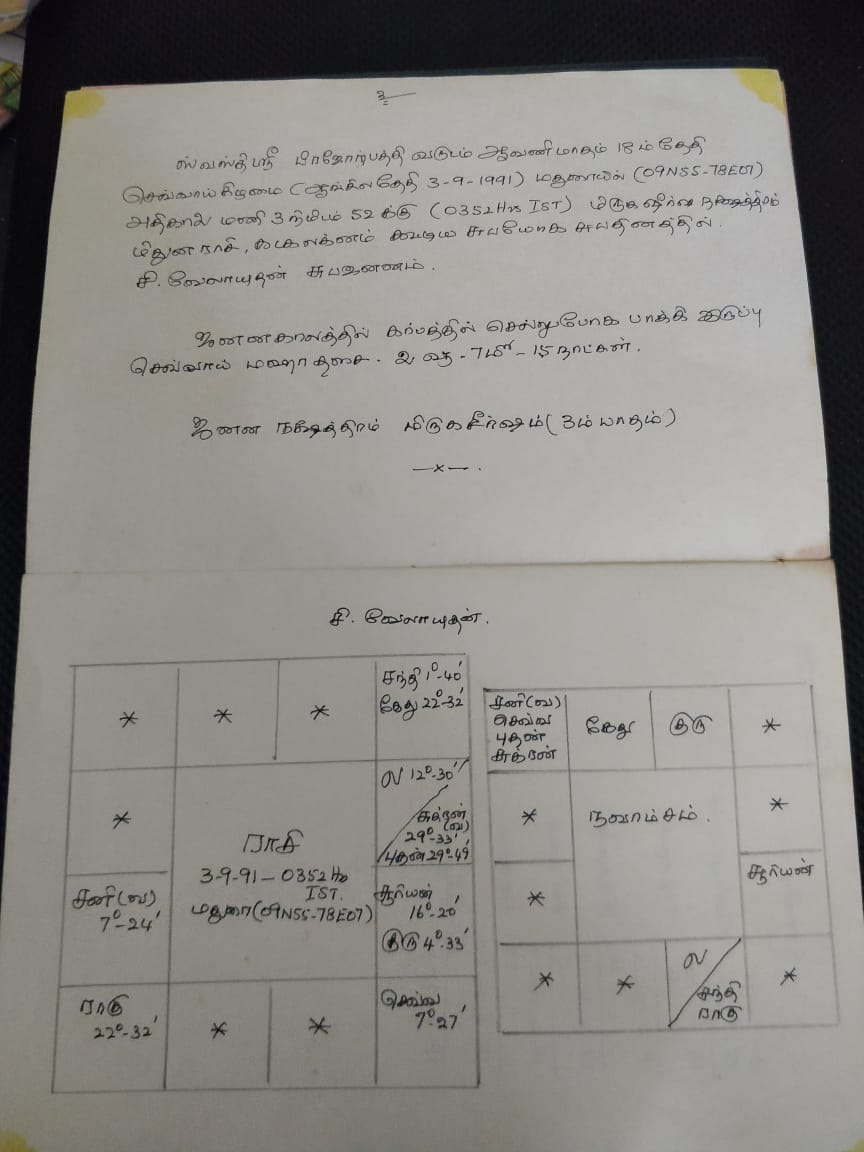 உ
ஸ்வஸ்திஸ்ரீ பிரஜோற்பத்தி வருடம் ஆவணி மாதம் 18ம் தேதி
செவ்வாய் கிழமை (ஆங்கிலதேதி 3-9-1991) மதுரையில் (09N55-78E07)
அதிகாலை மணி 3 நிமிடம் 52 க்கு (0352 Hrs IST) மிருகஷீர்ஷ நக்ஷத்திரம்
மிதுன ராசி, கடகலக்னம் கூடிய சுபயோக சுபதினத்தில்
சி. வேலாயுதன் சுபஜனனம்.
ஜனனகாலத்தில் கர்பத்தில் சென்றுபோக பாக்கி இருப்பு
செவ்வாய் மஹா தசை. 2 வரு - 7 மீ - 15 நாட்கள்.
ஜனன நக்ஷத்திரம் மிருகசீர்ஷம் (3ம் பாதம்)
—x—.
சி. வேலாயுதன்.
* * * சந்தி 1°-40′
கேது 22°-32′
* ல 12°-30′
சுக்ரன் (வ)
29°-33′
புதன் 29°-49′
ராசி
3-9-91 – 0352 Hrs
IST.
மதுரை (09N55-78E07)
சனி (வ)
7°-24′
சூரியன்
16°-20′
குரு 4°-33′
ராகு
22°-32′
* *
செவ்வ
7°-27′
சனி (வ)
செவ்வ
புதன்
சுக்ரன்
கேது குரு *
* நவாம்சம். *
* சூரியன்
* * ல
சந்தி
ராகு
*